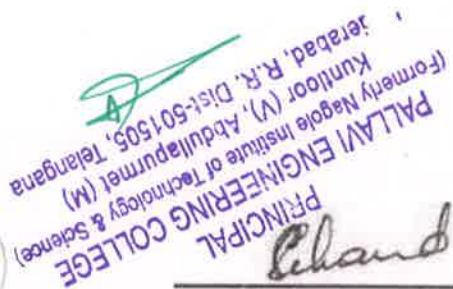 PRINCIPAL
PALLAVI ENGINEERING COLLEGE
(Formerly Nagole Institute of Technology & Science)
Kuntloor (V), Abdullapurmet (M)
erabad, R.R. Dist-501505, Telangana